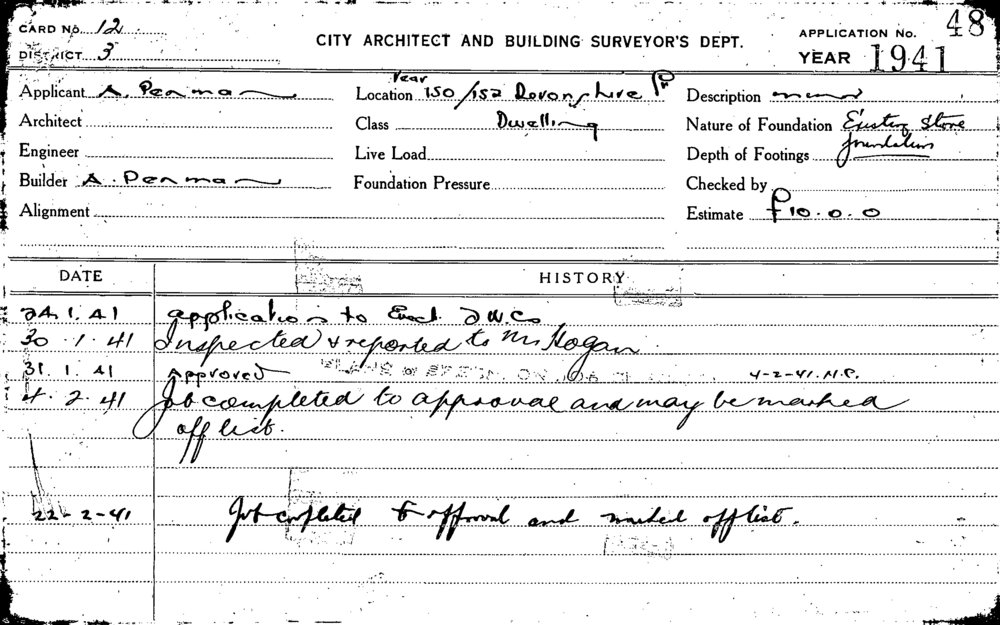 CARD No. 12
DISTRICT 3
CITY ARCHITECT AND BUILDING SURVEYOR'S DEPT.
APPLICATION No. 48
YEAR 1941
Applicant A. Penman
Rear
Location 150/152 Devonshire
Description
Architect
Class Dwelling
Nature of Foundation Existing Stone
foundations
Engineer
Live Load
Depth of Footings
Builder A. Penman
Foundation Pressure
Checked by
Alignment
Estimate £10.0.0
DATE
HISTORY
24.1.41 Application to Erect 2 W.Cs
30.1.41 Inspected & reported to Mr Hogan.
31.1.41 Approved 4-2-41. N.P.
4.2.41 Job completed to approval and may be marked
off list.
22-2-41 Job completed to approval and marked off list.